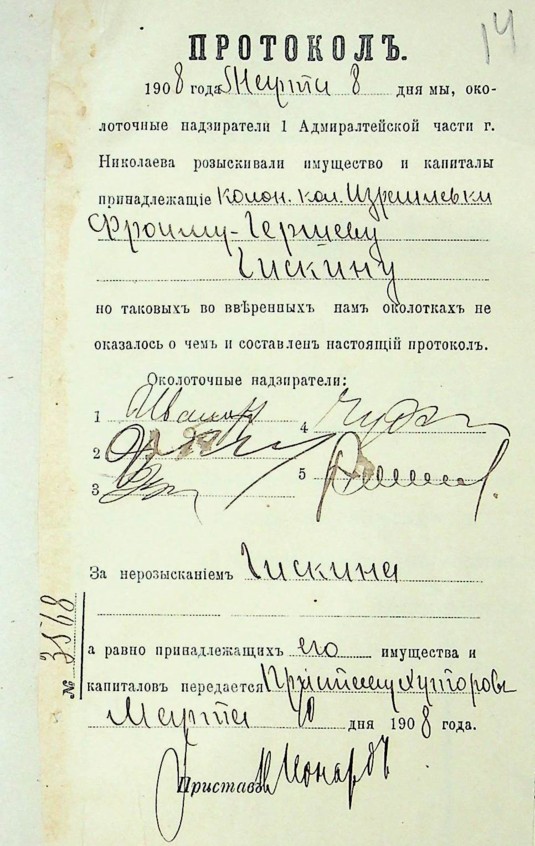 14
ПРОТОКОЛЪ.
1908 года Марта 8 дня мы, око-
лоточные надзиратели 1 Адмиралтейской части г.
Николаева розыскивали имущество и капиталы
принадлежащіе колон. кол. Израилевки
Фроиму-Гершеву
Чискину
но таковыхъ во ввѣренныхъ намъ околоткахъ не
оказалось о чемъ и составленъ настоящій протоколъ.
Околоточные надзиратели:
1
4
2
5
3
За нерозысканіемъ Чискина
а равно принадлежащихъ его имущества и
капиталовъ передается
Марта 10 дня 1908 года.
Приставъ
№ 3568